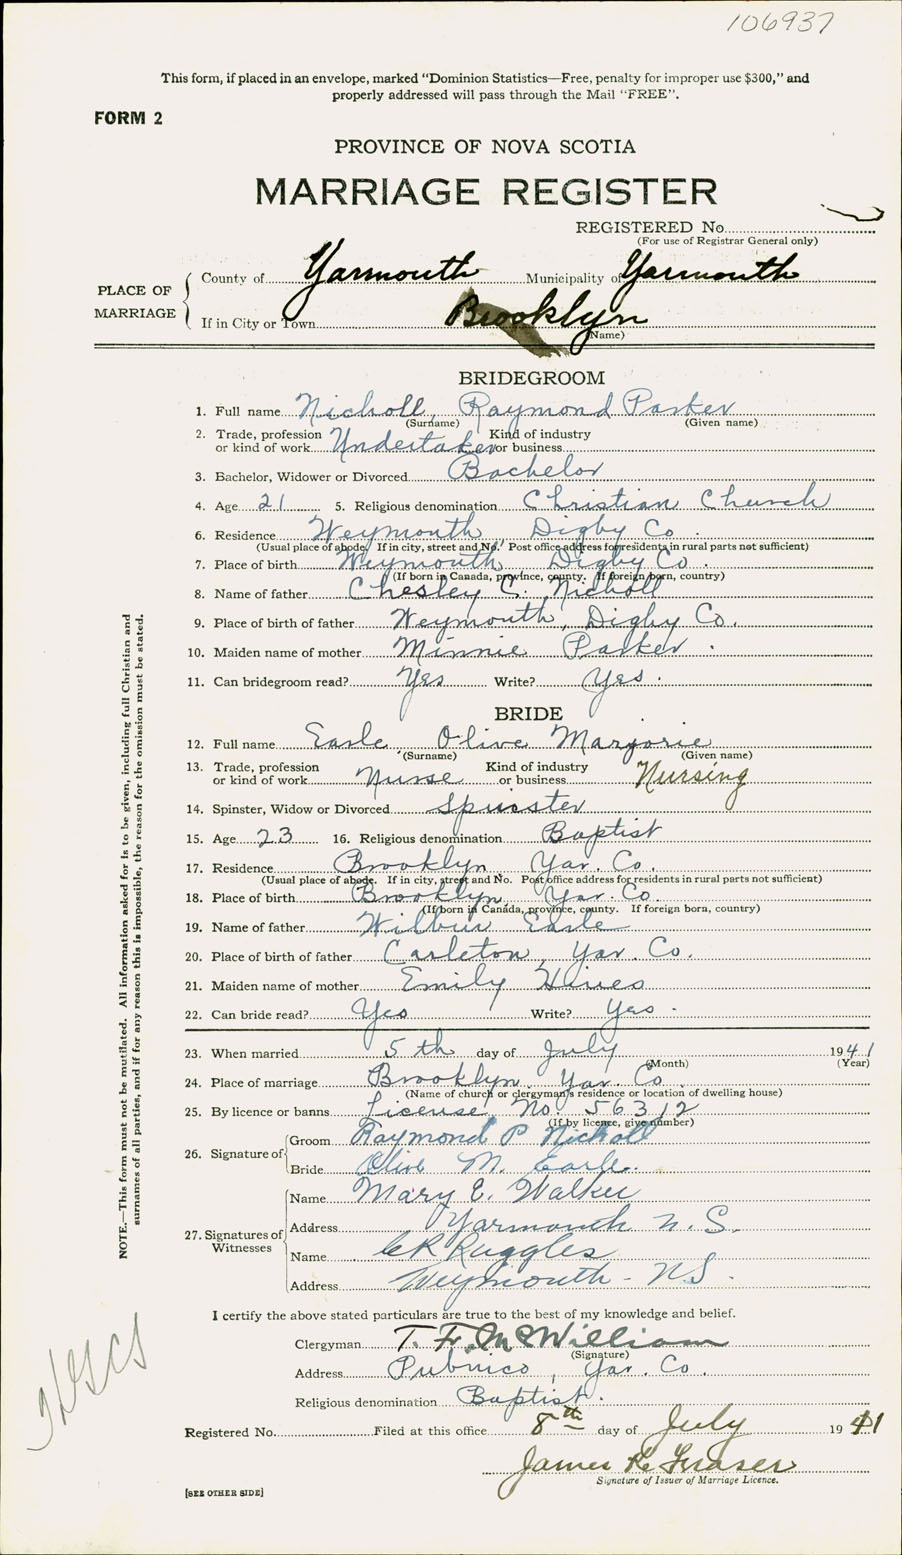 106937
This form, if placed in an envelope, marked "Dominion Statistics—Free, penalty for improper use $300," and
properly addressed will pass through the Mail "FREE".
FORM 2
PROVINCE OF NOVA SCOTIA
MARRIAGE REGISTER
REGISTERED No.
(For use of Registrar General only)
PLACE OF MARRIAGE
County of Yarmouth Municipality of Yarmouth
If in City or Town Brooklyn
(Name)
BRIDEGROOM
1. Full name Nicholl, Raymond Parker
(Surname) (Given name)
2. Trade, profession or kind of work Undertaker Kind of industry or business
3. Bachelor, Widower or Divorced Bachelor
4. Age 21 5. Religious denomination Christian Church
6. Residence Weymouth Digby Co.
(Usual place of abode. If in city, street and No. Post office address for residents in rural parts not sufficient)
7. Place of birth Weymouth Digby Co.
(If born in Canada, province, county. If foreign born, country)
8. Name of father Chesley C. Nicholl
9. Place of birth of father Weymouth, Digby Co.
10. Maiden name of mother Minnie Parker.
11. Can bridegroom read? Yes Write? Yes.
BRIDE
12. Full name Earle Olive Marjorie
(Surname) (Given name)
13. Trade, profession or kind of work Nurse Kind of industry or business Nursing
14. Spinster, Widow or Divorced Spinster
15. Age 23 16. Religious denomination Baptist
17. Residence Brooklyn Yar. Co.
(Usual place of abode. If in city, street and No. Post office address for residents in rural parts not sufficient)
18. Place of birth Brooklyn, Yar. Co.
(If born in Canada, province, county. If foreign born, country)
19. Name of father Wilbur Earle
20. Place of birth of father Carleton, Yar. Co.
21. Maiden name of mother Emily Hines
22. Can bride read? Yes Write? Yes.
23. When married 5th day of July 1941
(Month) (Year)
24. Place of marriage Brooklyn. Yar. Co.
(Name of church or clergyman's residence or location of dwelling house)
25. By licence or banns License No. 56312
(If by licence, give number)
26. Signature of
Groom Raymond P Nicholl
Bride Olive M. Earle.
27. Signatures of Witnesses
Name Mary E. Walker
Address Yarmouth N.S.
Name CR Ruggles
Address Weymouth - NS.
I certify the above stated particulars are true to the best of my knowledge and belief.
Clergyman T. F. McWilliam
(Signature)
Address Pubnico, Yar. Co.
Religious denomination Baptist.
Registered No. Filed at this office 8th day of July 1941
James R Fraser
Signature of Issuer of Marriage Licence.
[SEE OTHER SIDE]
NOTE.—This form must not be mutilated. All information asked for is to be given, including full Christian and
surnames of all parties, and if for any reason this is impossible, the reason for the omission must be stated.